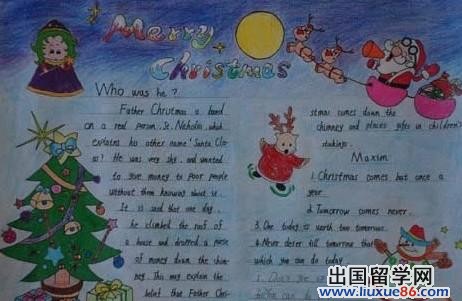 Merry
Christmas
Who was he?
Father Christmas is based
on a real person, St. Nicholas, which
explains his other name 'Santa Clo-
as'! He was very shy and wanted
to give money to poor people
without them knowing about it.
It is said that one day,
he climbed the roof of
a house and dropped a purse
of money down the chim-
ney. This may explain the
belief that Father Chri-
stmas comes down the
chimney and places gifts in children's
stockings.
Maxim
1. Christmas comes but once a
year.
2. Tomorrow comes never.
3. One today is worth two tomorrow.
4. Never deter till tomorrow that
which you can do today.
出国留学网
www.liuxue86.com